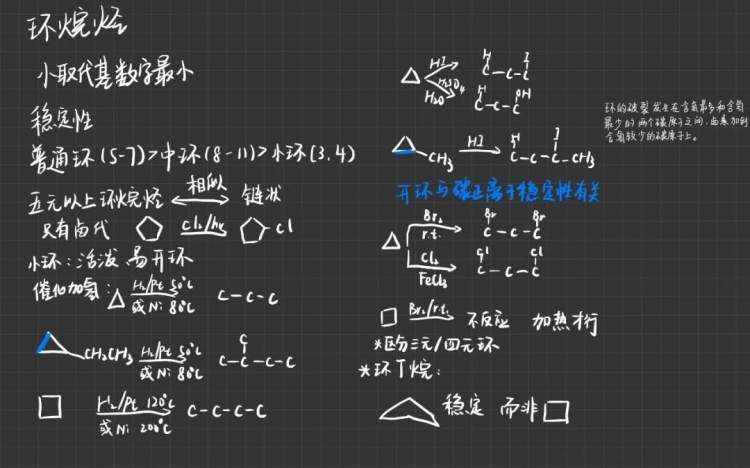 环烷烃
小取代基数字最小
稳定性
普通环(5-7)>中环(8-11)>小环(3,4)
五元以上环烷烃 相似 链状
只有卤代 Cl₂/hv Cl
小环:活泼,易开环
催化加氢: H₂/Pt 50℃ 或Ni 80℃ C-C-C
CH₂CH₃ H₂/Pt 50℃ 或Ni 80℃ C C-C-C-C
H₂/Pt 120℃ 或Ni 200℃ C-C-C-C
HI H I C-C-C
H₂SO₄ H₂O H OH C-C-C
环的破裂发生在含氢最多和含氢
最少的两个碳原子之间,卤素加到
含氢较少的碳原子上。
CH₃ HI H I C-C-C-CH₃
开环与碳正离子稳定性有关
Br₂ r.t. Br Br C-C-C
Cl₂ FeCl₃ Cl Cl C-C-C
Br₂/r.t. 不反应 加热才行
*区分三元/四元环
*环丁烷:
稳定 而非